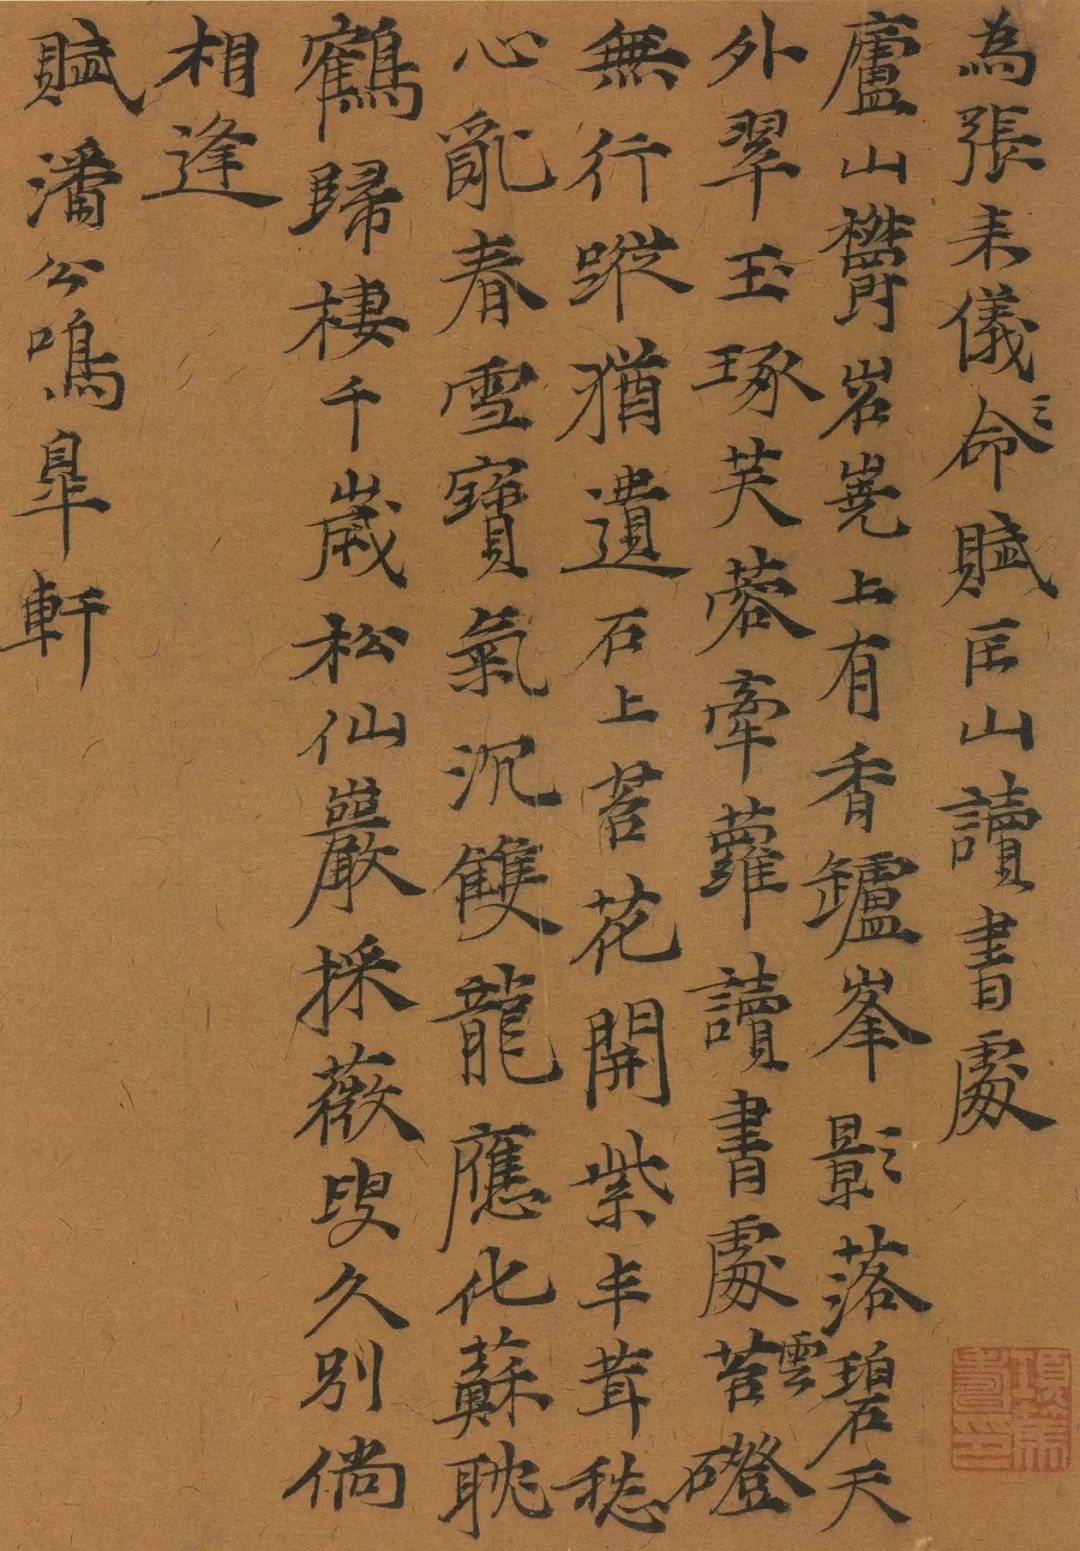 為張来儀命賦匡山讀書處
廬山欝岧嶤上有香罏峯影落碧天
外翠玉琢芙蓉牽蘿讀書處苔雲磴
無行蹤猶遺石上苔花開紫丰茸愁
心亂春雪寶氣沉雙龍應化蘇耽
鶴歸棲千歲松仙巖採薇叟久別倘
相逢
賦潘公鳴臯軒
項篤壽印